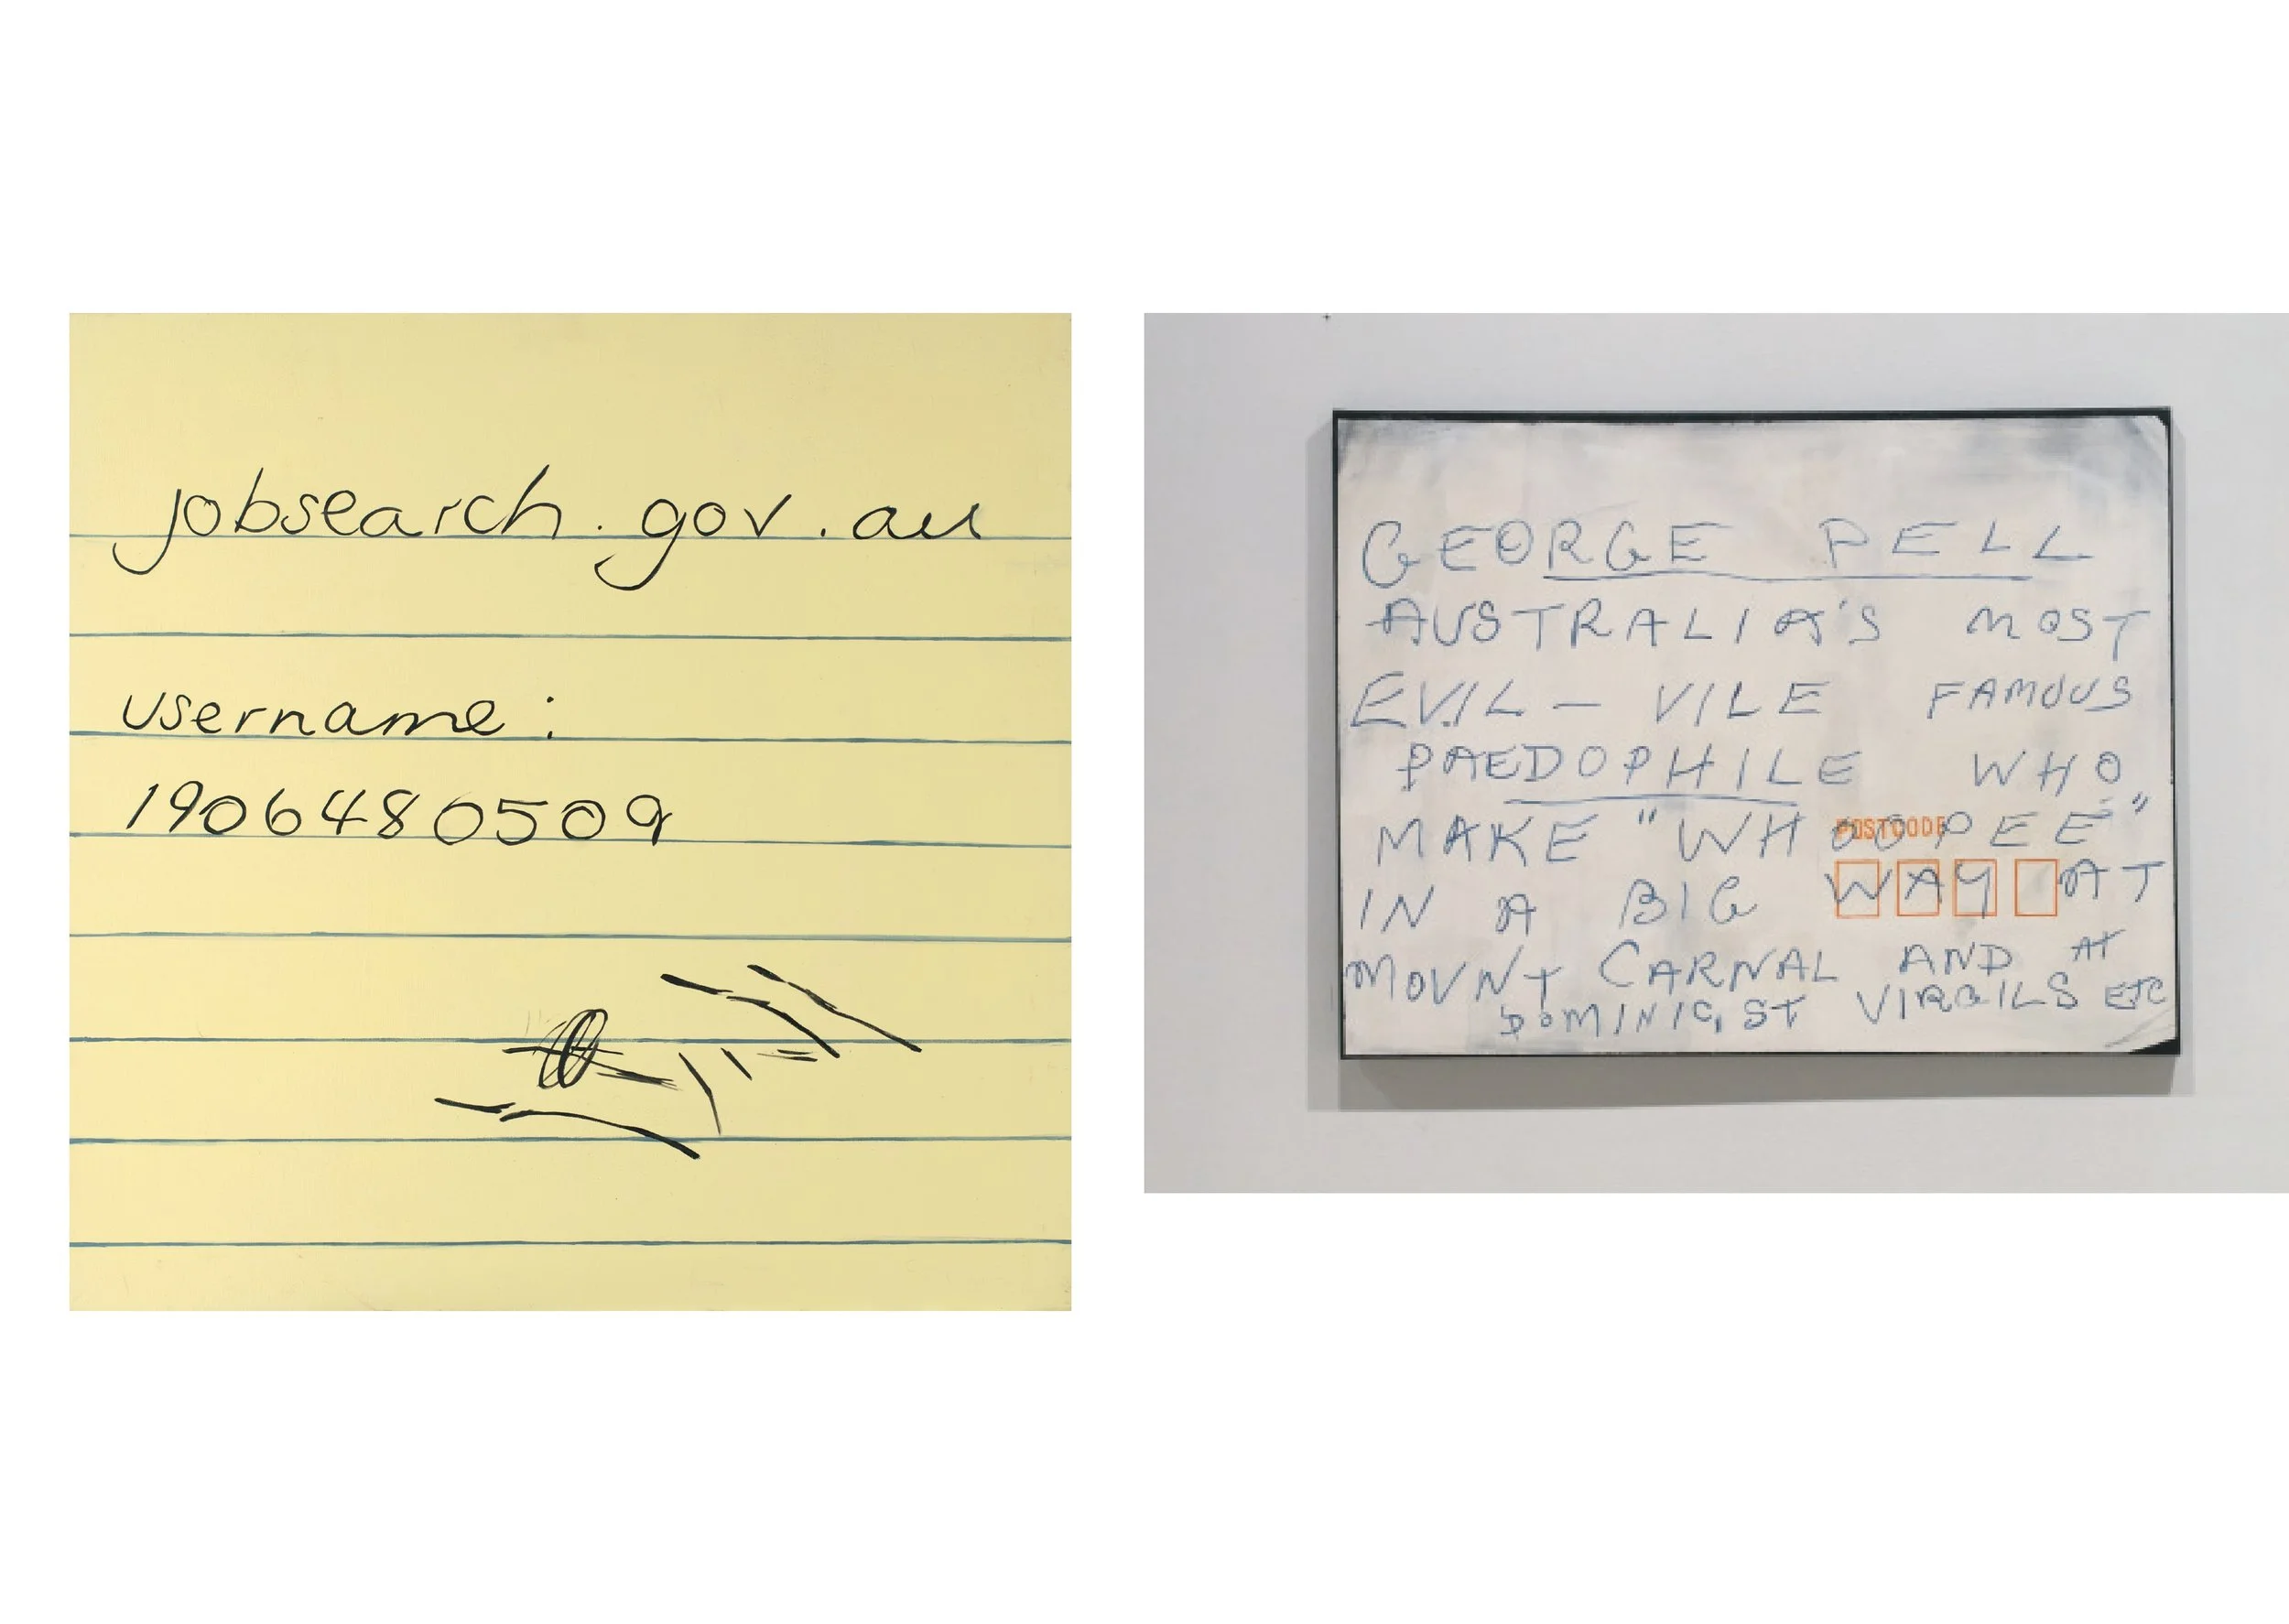 jobsearch.gov.au
username:
1906480509
GEORGE PELL
AUSTRALIA'S MOST
EVIL – VILE FAMOUS
PAEDOPHILE WHO
MAKE "WHOOPEE"
POSTCODE
IN A BIG WAY AT
MOUNT CARNAL AND AT
DOMINIC, ST VIRGILS ETC